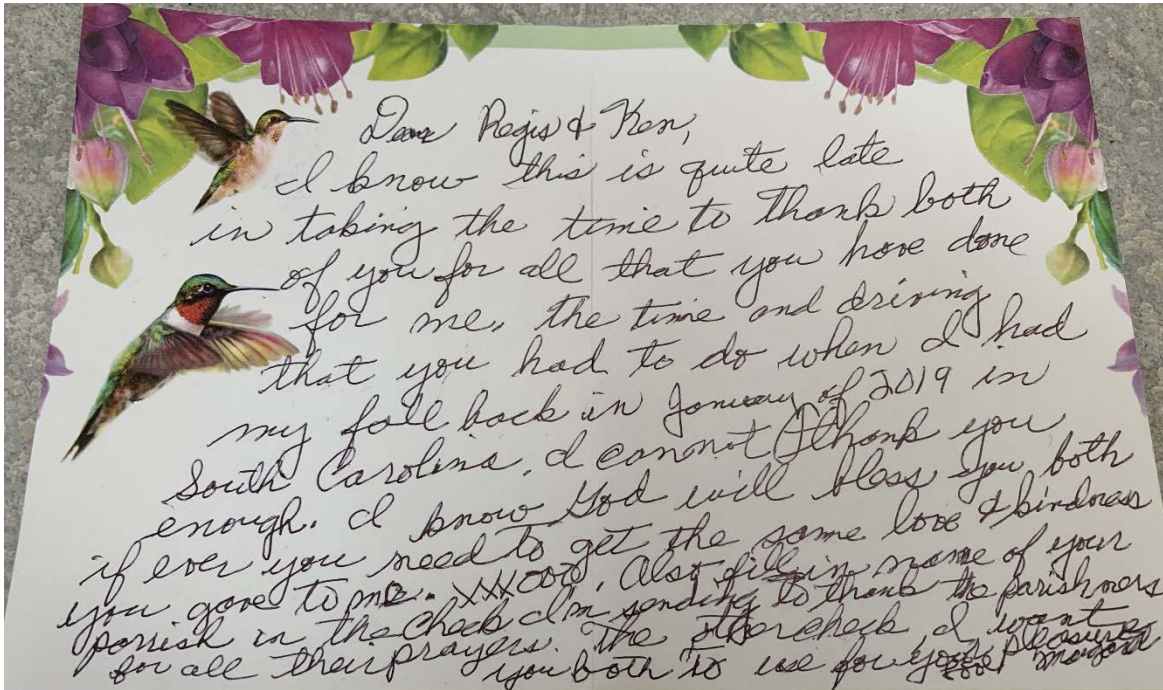 Dear Regis & Ken,
I know this is quite late
in taking the time to thank both
of you for all that you have done
for me. the time and driving
that you had to do when I had
my fall back in January of 2019 in
South Carolina. I cannot thank you
enough. I know God will bless you both
if ever you need to get the same love & kindness
you gave to me. XXXOOO. Also fill in name of your
parrish in the check I'm sending to thank the parishners
for all their prayers. The other check I want
you both to use for your pleasure